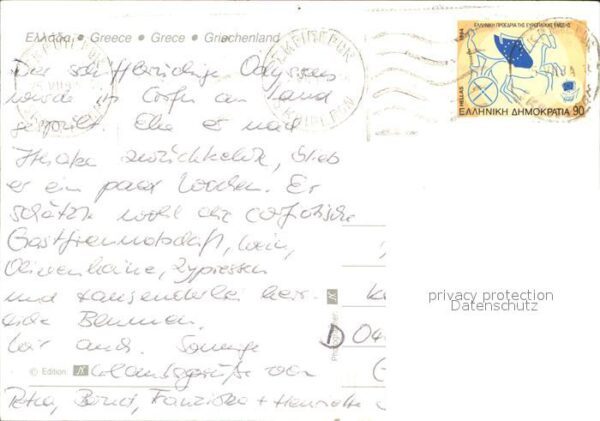 Ελλάδα • Greece • Grece • Griechenland
1994 ΕΛΛΗΝΙΚΗ ΠΡΟΕΔΡΙΑ ΤΗΣ ΕΥΡΩΠΑΪΚΗΣ ΕΝΩΣΗΣ
HELLAS
ΕΛΛΗΝΙΚΗ ΔΗΜΟΚΡΑΤΙΑ 90
Der schiffbrüchige Odysseus
wurde in Corfu an Land
gespült. Ehe er nach
Ithaka zurückkehrte, blieb
er ein paar Wochen. Er
schätzte wohl die corfiotische
Gastfreundschaft, Wein,
Olivenhaine, Zypressen
und tausenderlei herr-
liche Blumen.
Wir auch. Sonnige
Urlaubsgrüße von
Petra, Bernd, Franziska + Henriette
© Edition
Photographer:
D 04
privacy protection
Datenschutz